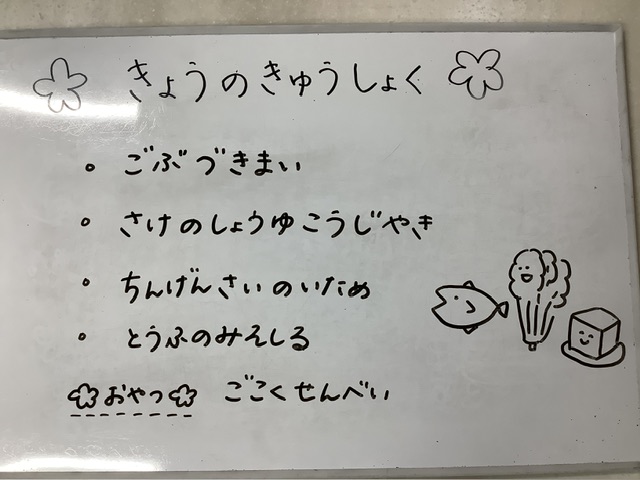 きょうのきゅうしょく
。ごぶづきまい
。さけのしょうゆこうじやき
。ちんげんさいのいため
。とうふのみそしる
おやつ ごこくせんべい